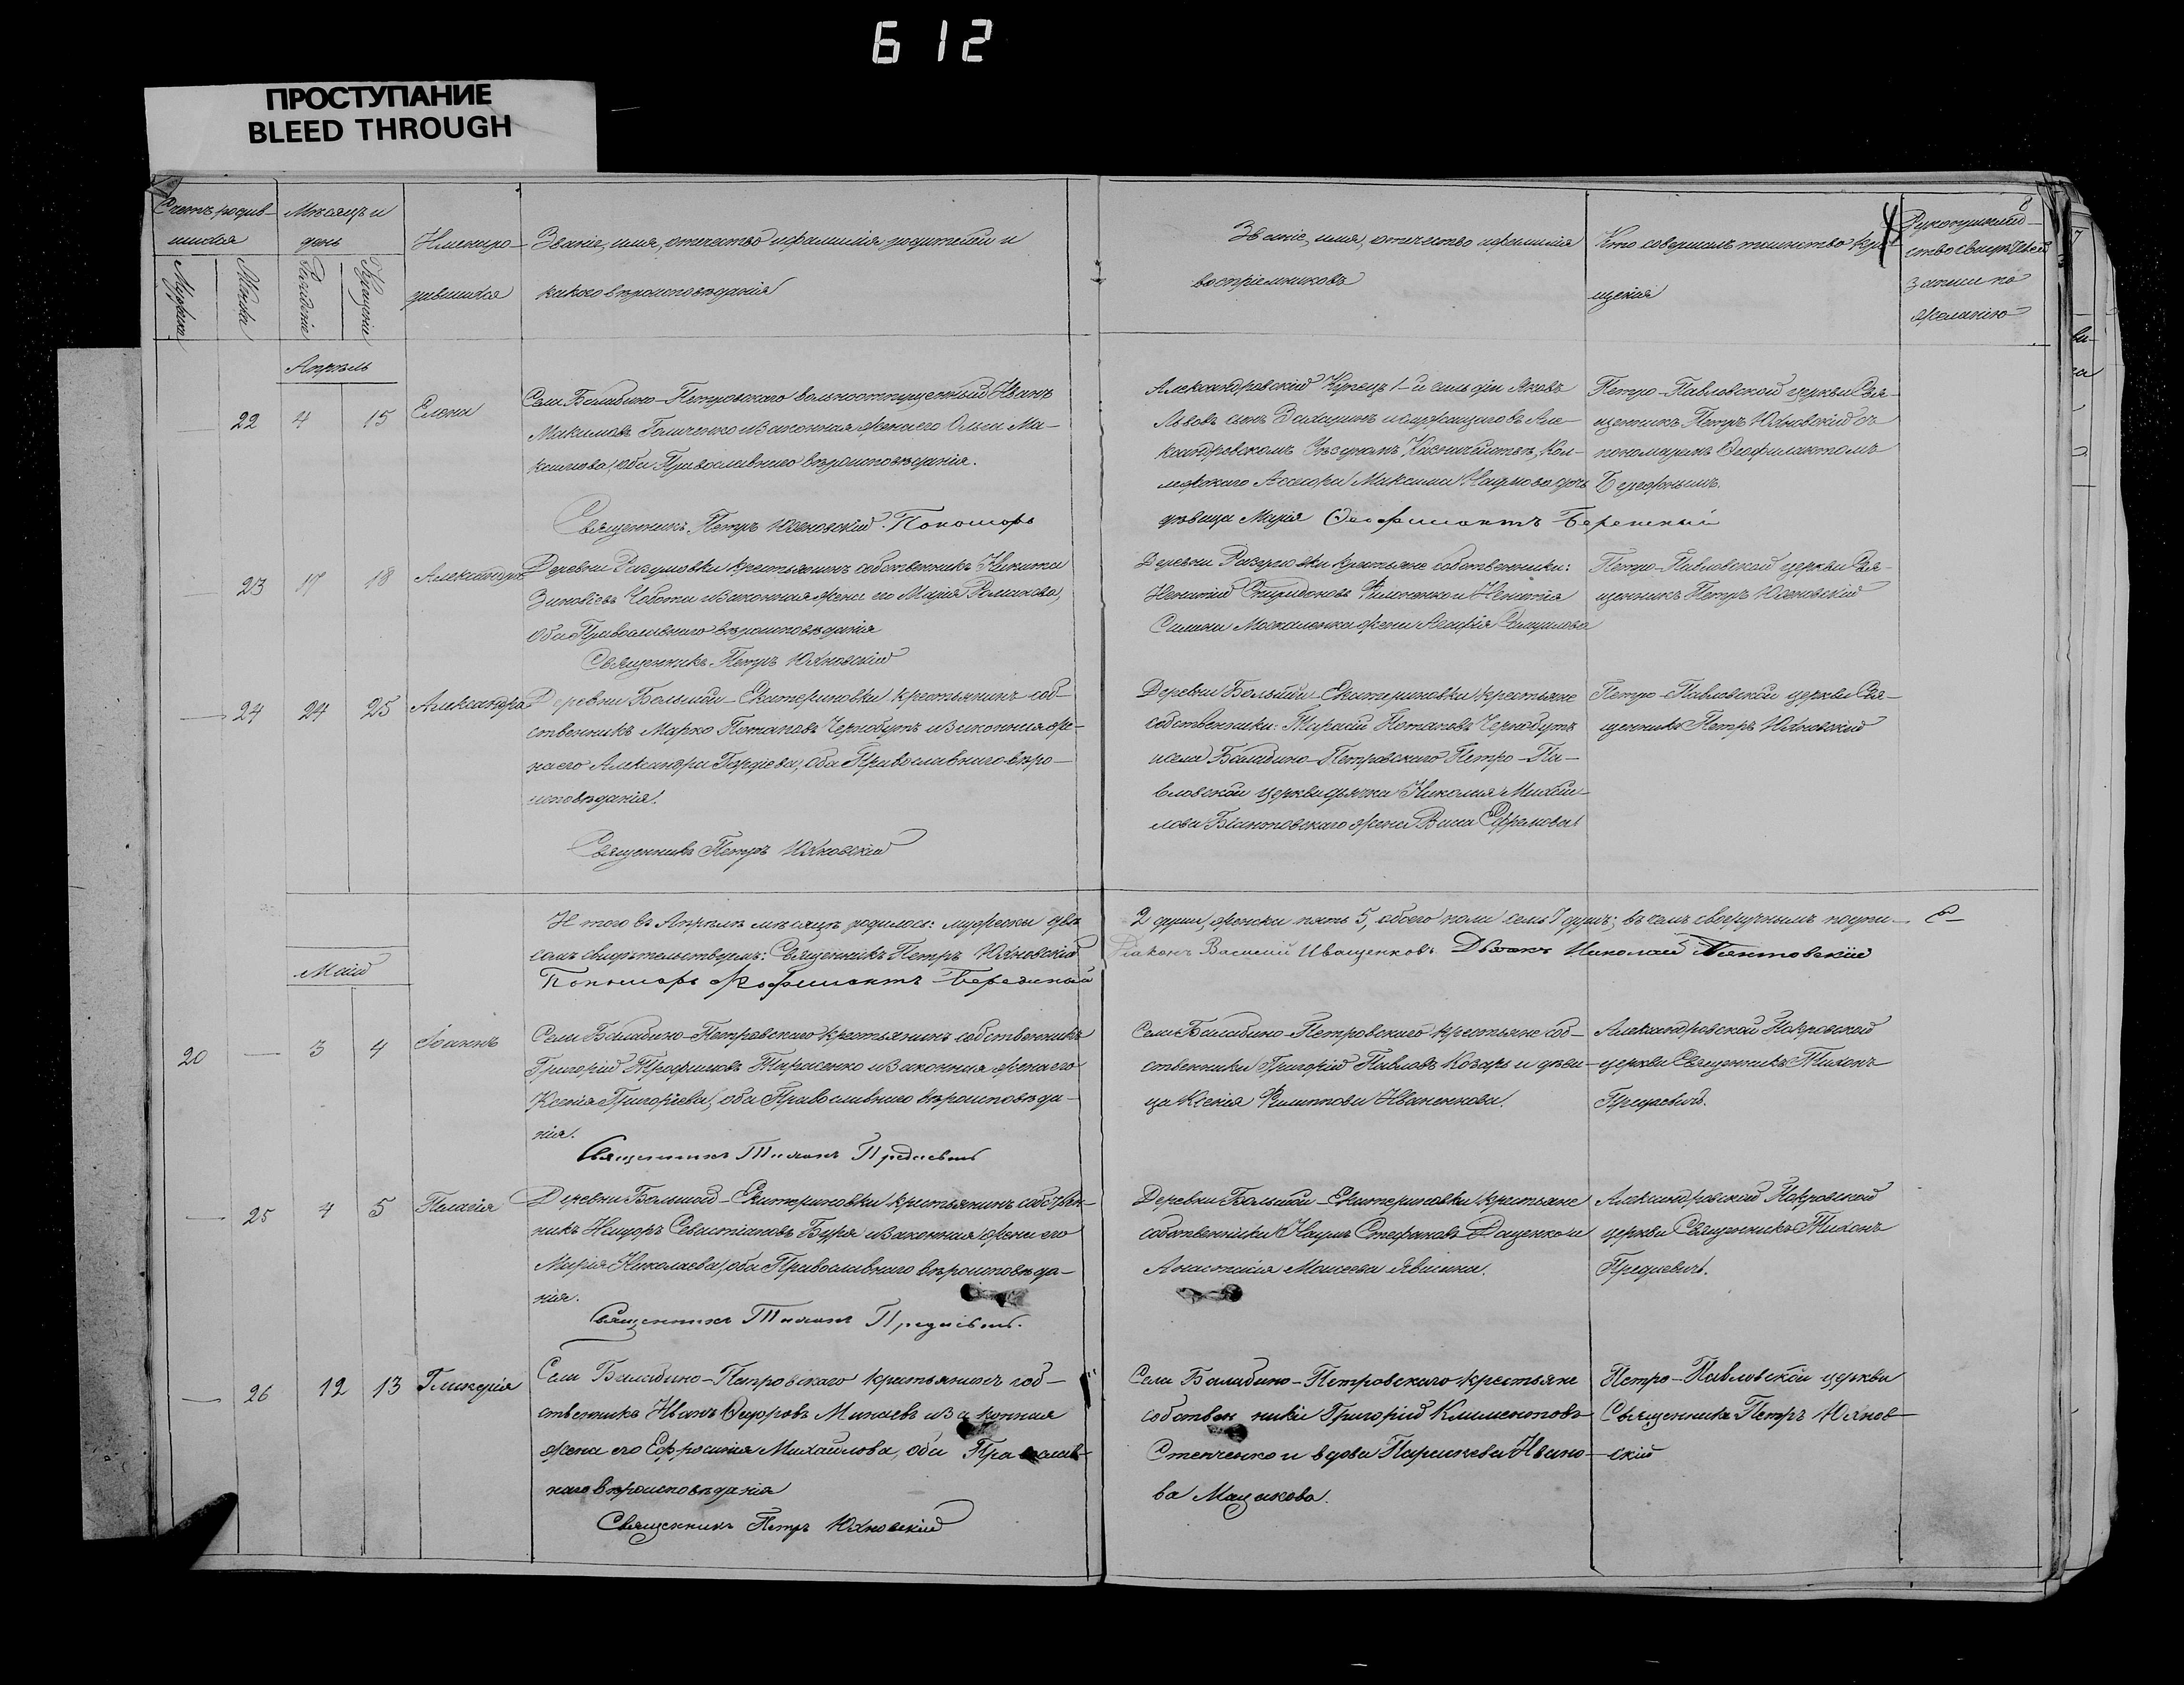 612
ПРОСТУПАНИЕ
BLEED THROUGH
8
Счетъ родив-
шихся
Мужска
Женска
Мѣсяцъ и
день
Рожденіе
Крещеніе
Имена ро-
дившихся
Званіе, имя, отчество и фамилія родителей и
какого вѣроисповѣданія
Званіе, имя, отчество и фамилія
воспріемниковъ
Кто совершалъ таинство кре-
щенія
Рукоприклад-
ство свидѣтелей
записи по
желанію
Апрѣль
22 4 15 Елена
Села Балабино-Петровскаго вольноотпущенный Иванъ
Максимовъ и законная жена его Ольга Ма-
ксимова, оба Православнаго вѣроисповѣданія.
Священникъ Петръ Юхновскій. Пономарь
Александровскій Купецъ 1-й гильдіи Яковъ
Львовъ сынъ Захаринъ и въ Але-
ксандровскомъ Уѣздномъ Казначействѣ, Кол-
лежскаго Асессора Максима Наумова дочь
дѣвица Марія Ѳеофилактъ Бережный
Петро-Павловской церкви Свя-
щенникъ Петръ Юхновскій съ
пономаремъ Ѳеофилактомъ
Бережнымъ.
23 17 18 Александра
Деревни Разумовки крестьянинъ собственникъ Никита
Зиновіевъ Чобота и законная жена его Марія Романова,
оба Православнаго вѣроисповѣданія
Священникъ Петръ Юхновскій
Деревни Разумовки крестьяне собственники:
Игнатій Спиридоновъ Филоненко и Игнатія
Москаленка жена Самуилова
Петро-Павловской церкви Свя-
щенникъ Петръ Юхновскій
24 24 25 Александра
Деревни Большой-Екатериновки крестьянинъ соб-
ственникъ Марко Потаповъ Чернобутъ и законная же-
на его Александра Гордіева, оба Православнаго вѣро-
исповѣданія.
Священникъ Петръ Юхновскій
Деревни Большой-Екатериновки крестьяне
собственники: Потаповъ Чернобутъ
и села Балабино-Петровскаго Петро-Па-
вловской церкви дьячка Николая Михай-
лова Бѣлантовскаго жена Васса Ефремова.
Петро-Павловской церкви Свя-
щенникъ Петръ Юхновскій
Итого въ Апрѣлѣ мѣсяцѣ родилось: мужеска два
2 души, женска пять 5, обоего пола семь 7 душъ; въ семъ своеручнымъ подпи-
самъ свидѣтельствуемъ: Священникъ Петръ Юхновскій
Діаконъ Василій Иващенковъ. Дьячокъ Николай
Пономарь Ѳеофилактъ Бережный
Май
20 3 4 Іоаннъ
Села Балабино-Петровскаго крестьянинъ собственникъ
Григорій Трофимовъ Тарасенко и законная жена его
Ксенія Григорьева, оба Православнаго вѣроисповѣда-
нія.
Священникъ Тихонъ Предіевичъ
Села Балабино-Петровскаго крестьяне соб-
ственники Григорій Павловъ Козарь и дѣви-
ца Ксенія Филиппова Иваненкова.
Александровской Покровской
церкви Священникъ Тихонъ
Предіевичъ.
25 4 5 Пелагія
Деревни Большой-Екатериновки крестьянинъ собствен-
никъ Севастіановъ Буря и законная жена его
Марія Николаева, оба Православнаго вѣроисповѣда-
нія.
Священникъ Тихонъ Предіевичъ.
Деревни Большой-Екатериновки крестьяне
собственники Наумъ Стефановъ Даценко и
Анастасія Моисеева
Александровской Покровской
церкви Священникъ Тихонъ
Предіевичъ.
26 12 13 Гликерія
Села Балабино-Петровскаго крестьянинъ соб-
ственникъ Иванъ Ѳедоровъ Минаевъ и законная
жена его Ефросинія Михайлова, оба Православ-
наго вѣроисповѣданія
Священникъ Петръ Юхновскій
Села Балабино-Петровскаго крестьяне
собственники Григорій Климентовъ
Степченко и вдова Параскева Ивано-
ва Мацакова.
Петро-Павловской церкви
Священникъ Петръ Юхнов-
скій